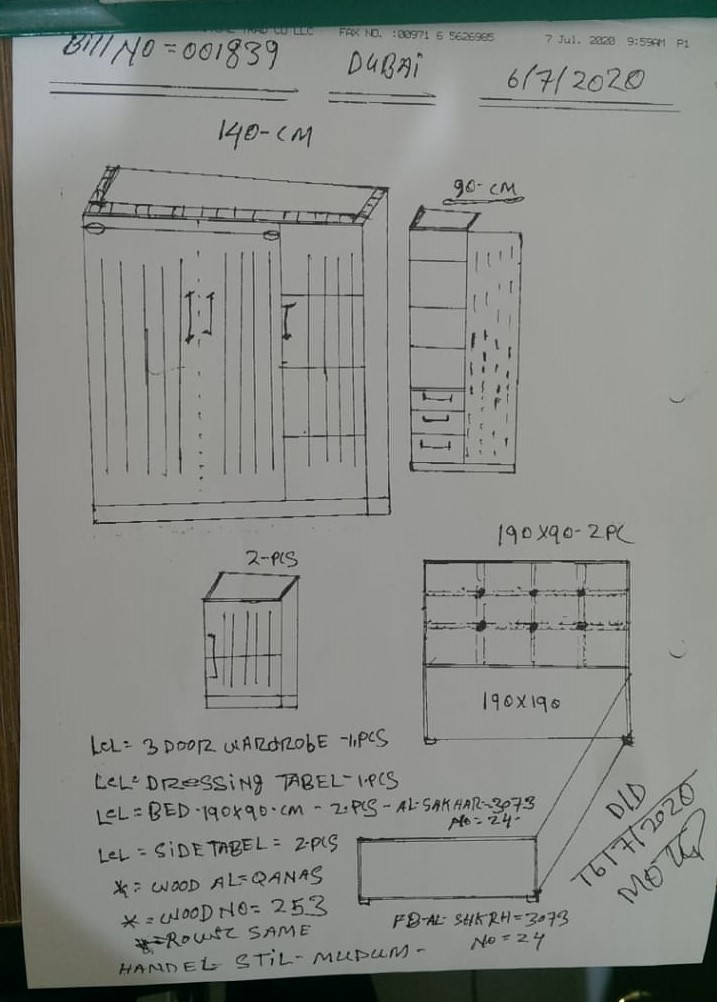 TRAD CO LLC FAX NO. :00971 6 5626985 7 Jul. 2020 9:59AM P1
Bill NO =001839 DUBAi 6/7/2020
140-CM
90-CM
2-PCS
190X90-2PC
190X190
LCL= 3 DOOR WARDROBE -1.PCS
LCL=DRESSING TABEL-1.PCS
LCL=BED-190X90-CM - 2-PCS - AL-SAKHAR-3073
NO=24-
LCL = SIDE TABEL = 2-PCS
*= WOOD AL=QANAS
*=WOOD NO= 253
SAME
HANDEL STIL- MUDUM-
D/D
16/7/2020
AL-SHKRH=3073
NO=24